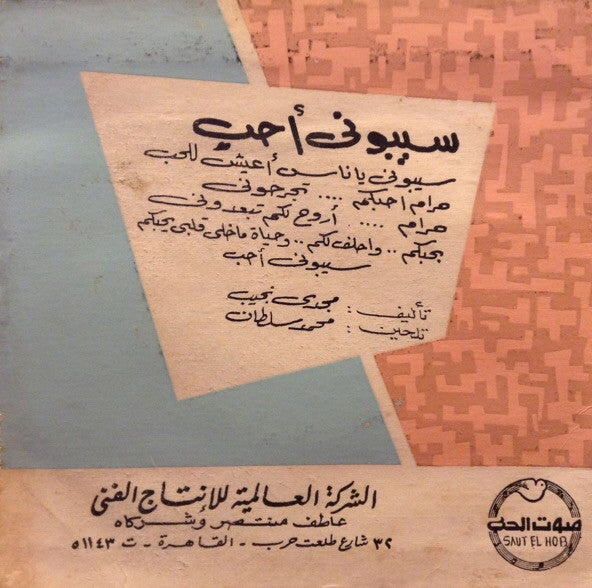 سيبونى أحب
سيبونى ياناس أعيش للحب
حرام احبكم .... تجرحونى
حرام .... أروح لكم تبعدونى
بحبكم .. واحلف لكم .. وحياة ماخلى قلبى يحبكم
سيبونى أحب
تأليف : مجدى نجيب
تلحين : محمد سلطان
الشركة العالمية للإنتاج الفنى
عاطف منتصر وشركاه
٣٢ شارع طلعت حرب - القاهرة - ت ٥١١٤٣
صوت الحب
SAUT EL HOB